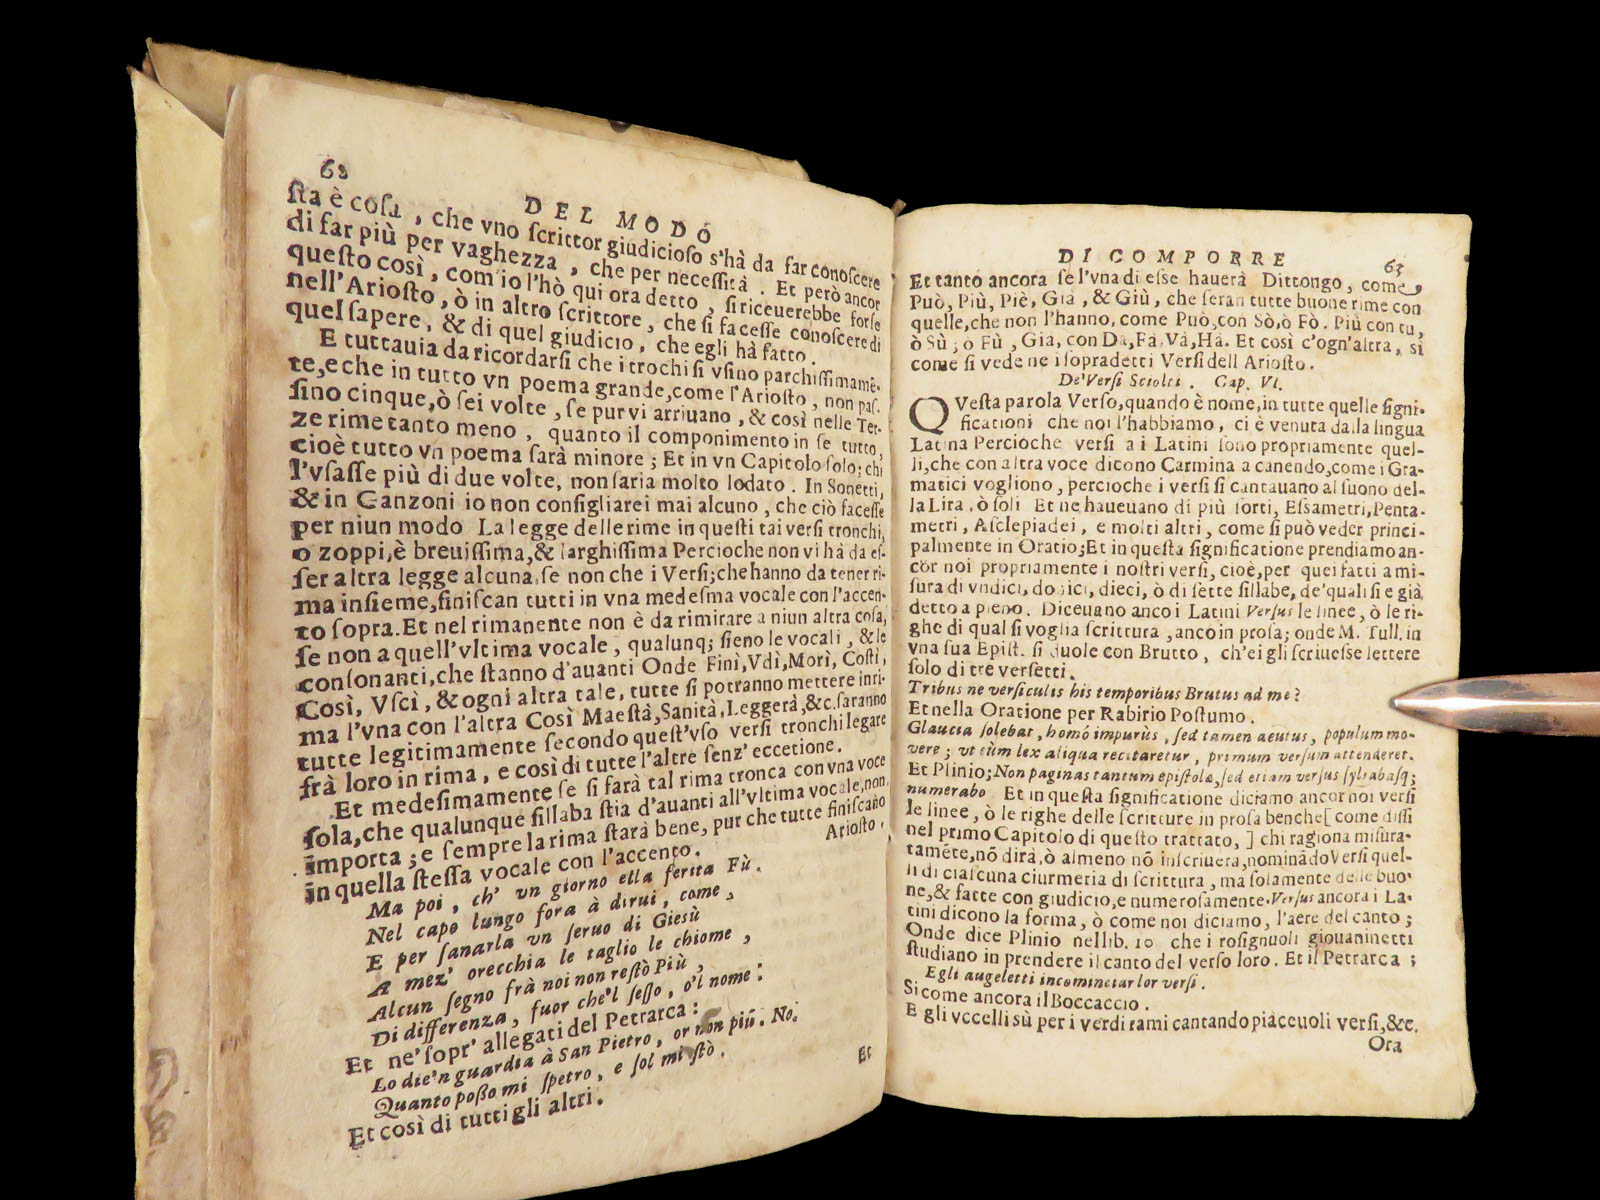 62
DEL MODO
ſta è coſa, che vno ſcrittor giudicioſo s'hà da far conoſcere
di far più per vaghezza, che per neceſſità. Et però ancor
queſto così, com'io l'hò qui ora detto, ſi riceuerebbe forſe
nell'Arioſto, ò in altro ſcrittore, che ſi faceſſe conoſcere di
quel ſapere, & di quel giudicio, che egli hà fatto.
E tuttauia da ricordarſi che i trochi ſi vſino parchiſſimamē-
te, e che in tutto vn poema grande, come l'Arioſto, non paſ-
ſino cinque, ò ſei volte, ſe pur vi arriuano, & così nelle Ter-
ze rime tanto meno, quanto il componimento in ſe tutto,
cioè tutto vn poema ſarà minore; Et in vn Capitolo ſolo; chi
l'vſaſſe più di due volte, non ſaria molto lodato. In Sonetti,
& in Canzoni io non configliarei mai alcuno, che ciò faceſſe
per niun modo La legge delle rime in queſti tai verſi tronchi,
o zoppi, è breuiſſima, & larghiſſima Percioche non vi hà da eſ-
ſer altra legge alcuna, ſe non che i Verſi; che hanno da tener ri-
ma inſieme, finiſcan tutti in vna medeſma vocale con l'accen-
to ſopra. Et nel rimanente non è da rimirare a niun altra coſa,
ſe non a quell'vltima vocale, qualunq; ſieno le vocali, & le
conſonanti, che ſtanno d'auanti Onde Finì, Vdì, Morì, Coſtì,
Così, Vſcì, & ogni altra tale, tutte ſi potranno mettere in ri-
ma l'vna con l'altra Così Maeſtà, Sanità, Leggerà, &c. ſaranno
tutte legitimamente ſecondo queſt'vſo verſi tronchi legare
frà loro in rima, e così di tutte l'altre ſenz'eccetione.
Et medeſimamente ſe ſi farà tal rima tronca con vna voce
ſola, che qualunque ſillaba ſtia d'auanti all'vltima vocale, non
importa; e ſempre la rima ſtarà bene, pur che tutte finiſcano
in quella ſteſſa vocale con l'accento. Arioſto.
Ma poi, ch' vn giorno ella ferita Fù.
Nel capo lungo fora à dirui, come,
E per ſanarla vn ſeruo di Gieſù
A mez' orecchia le taglio le chiome,
Alcun ſegno frà noi non reſtò Più,
Di differenza, fuor che'l ſeſſo, o'l nome:
Et ne' ſopr' allegati del Petrarca:
Lo die'n guardia à San Pietro, or non più. No.
Quanto poſſo mi ſpetro, e ſol mi ſtò.
Et così di tutti gli altri.
Et
DI COMPORRE
63
Et tanto ancora ſe l'vna di eſſe hauerà Dittongo, come,
Può, Più, Piè, Già, & Giù, che ſeran tutte buone rime con
quelle, che non l'hanno, come Può, con Sò, ò Fò. Più con tu,
ò Sù; ò Fù, Già, con Da, Fà, Và, Hà. Et così c'ogn'altra, sì
come ſi vede ne i ſopradetti Verſi dell Arioſto.
De' Verſi Sciolti. Cap. VI.
QVeſta parola Verſo, quando è nome, in tutte quelle ſigni-
ficationi che noi l'habbiamo, ci è venuta dalla lingua
Latina Percioche verſi a i Latini ſono propriamente quel-
li, che con altra voce dicono Carmina a canendo, come i Gra-
matici vogliono, percioche i verſi ſi cantauano al ſuono del-
la Lira, ò ſoli Et ne haueuano di più ſorti, Eſſametri, Penta-
metri, Aſclepiadei, e molti altri, come ſi può veder princi-
palmente in Oratio; Et in queſta ſignificatione prendiamo an-
cor noi propriamente i noſtri verſi, cioè, per quei fatti a mi-
ſura di vndici, dodici, dieci, ò di ſette ſillabe, de' quali ſi e già
detto a pieno. Diceuano anco i Latini Verſus le linee, ò le ri-
ghe di qual ſi voglia ſcrittura, anco in proſa; onde M. Tull. in
vna ſua Epiſt. ſi duole con Brutto, ch'ei gli ſcriueſſe lettere
ſolo di tre verſetti.
Tribus ne verſiculis his temporibus Brutus ad me?
Et nella Oratione per Rabirio Poſtumo.
Glaucia ſolebat, homó impurùs, ſed tamen acutus, populum mo-
nere; vt cùm lex aliqua recitaretur, primum verſum attenderet.
Et Plinio; Non paginas tantum epiſtolæ, ſed etiam verſus ſyllabaſq;
numerabo Et in queſta ſignificatione diciamo ancor noi verſi
le linee, ò le righe delle ſcritture in proſa benche [ come diſſi
nel primo Capitolo di queſto trattato, ] chi ragiona miſura-
tamēte, nō dirà, ò almeno nō inſcriuerà, nominādo Verſi quel-
li di ciaſcuna ciurmeria di ſcrittura, ma ſolamente delle buo-
ne, & fatte con giudicio, e numeroſamente. Verſus ancora i La-
tini dicono la forma, ò come noi diciamo, l'aere del canto;
Onde dice Plinio nel lib. 10 che i roſignuoli giouaninetti
ſtudiano in prendere il canto del verſo loro. Et il Petrarca;
E gli augeletti incominciar lor verſi.
Si come ancora il Boccaccio.
E gli vccelli sù per i verdi rami cantando piaceuoli verſi, &c.
Ora